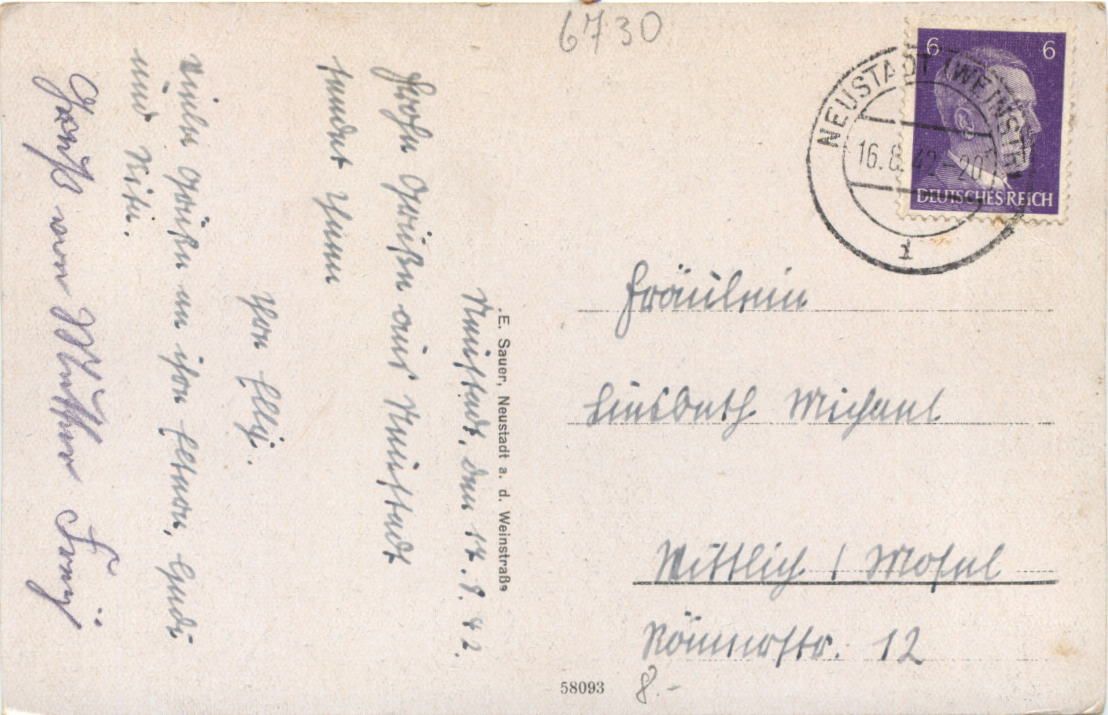 6730
6 6
DEUTSCHES REICH
NEUSTADT (WEINSTR)
16.8.42-20
1
Neustadt, den 14.8.42.
Frohe Grüße aus Neustadt
sendet Ihnen
Ihre Elly.
Viele Grüße an ihre Eltern,
und Rita.
Gruß von Mutter
E. Sauer, Neustadt a. d. Weinstraße
Fräulein
Liesbeth Michael
Wittlich / Mosel
Römerstr. 12
58093
8.-